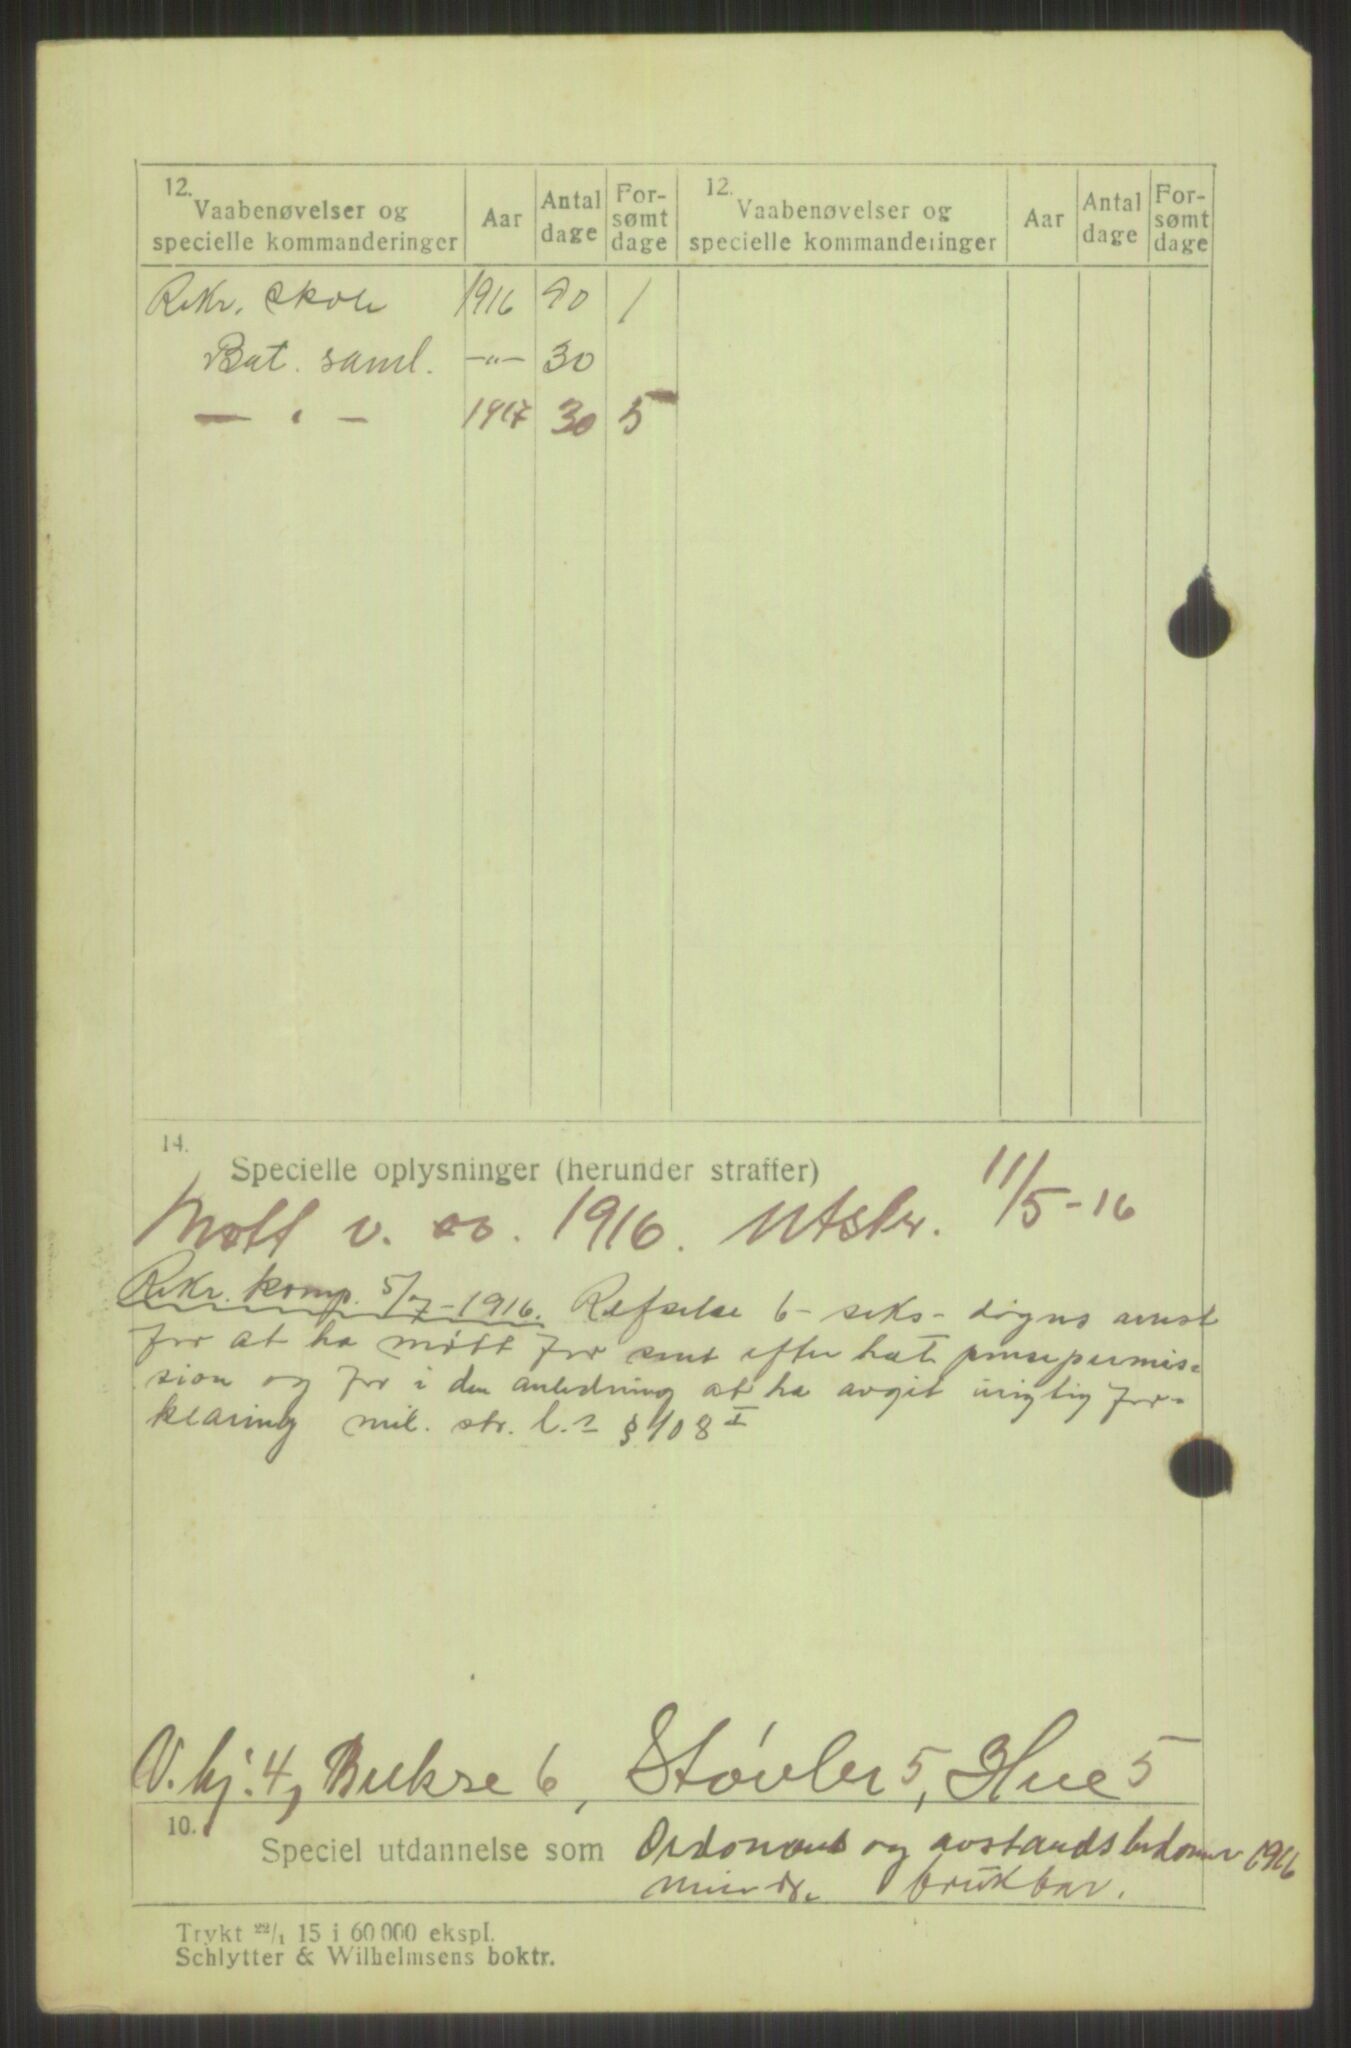 12. Vaabenøvelser og specielle kommanderinger | Aar | Antal dage | For-sømt dage | 12. Vaabenøvelser og specielle kommanderinger | Aar | Antal dage | For-sømt dage
Rekr. skole 1916 90 1
Bat. saml. -"- 30
- " - 1917 30 5
14.
Specielle oplysninger (herunder straffer)
Møtt v. 1916. Utskr. 11/5-16
Rekr. komp. 5/7-1916. Refselse 6- seks- døgns arrest
for at ha møtt for sent efter hat pinsepermis=
sion og for i den anledning at ha avgit urigtig for=
klaring mil. str. l. § 108 I
V. kj. 4, Bukse 6, Støvler 5, Hue 5
10.
Speciel utdannelse som Ordonans og avstandsbedømmer 1916
mindr. brukbar.
Trykt 22/1 15 i 60 000 ekspl.
Schlytter & Wilhelmsens boktr.